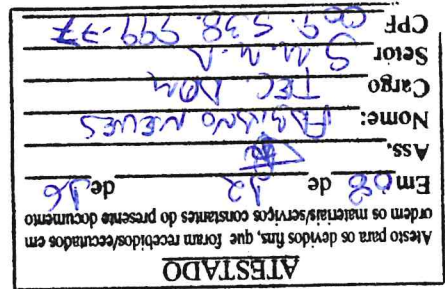 ATESTADO
Atesto para os devidos fins, que foram recebidos/executados em
ordem os materiais/serviços constantes do presente documento
Em 08 de 12 de 16
Ass.
Nome: FABIANO NEVES
Cargo TEC. ADM
Setor S.M.M.A
CPF 009.538.999-77